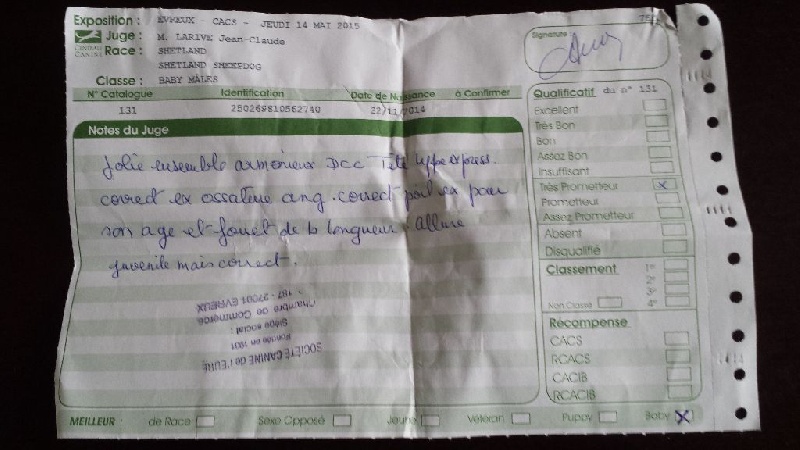 Exposition : EVREUX - CACS - JEUDI 14 MAI 2015
Juge : M. LARIVE Jean-Claude
CENTRALE CANINE
Race : SHETLAND
SHETLAND SHEEPDOG
Classe : BABY MALES
Signature
N° Catalogue Identification Date de Naissance à Confirmer
131 250269810562740 22/11/2014
Notes du Juge
Jolie ensemble armonieux Dcc Tete express.
correct ex ossature ang. correct poil ex pour
son age et fouet de la longueur allure
juvenile mais correct.
SOCIÉTÉ CANINE de l'EURE
Fondée en 1931
Siège social :
Chambre de Commerce
187 - 27001 EVREUX
Qualificatif du n° 131
Excellent
Très Bon
Bon
Assez Bon
Insuffisant
Très Prometteur X
Prometteur
Assez Prometteur
Absent
Disqualifié
Classement 1er
2e
3e
Non Classé 4e
Récompense
CACS
RCACS
CACIB
RCACIB
MEILLEUR : de Race Sexe Opposé Jeune Vétéran Puppy Baby X